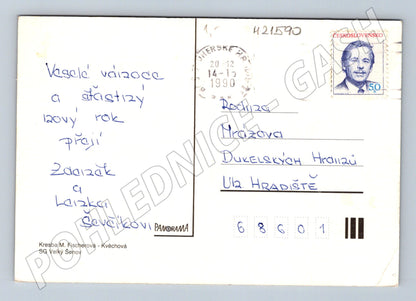 1,-
421590
ČESKOSLOVENSKO
1990
50
Veselé vánoce
a šťastný
nový rok
přejí
Zdeněk
a
Lenka
Ševčíkovi
PANORAMA
Rodina
Mrázova
Dukelských Hrdinů
Uh. Hradiště
68601
Kresba M. Fischerová - Kvěchová
SG Velký Šenov
POHLEDNICE - GASH